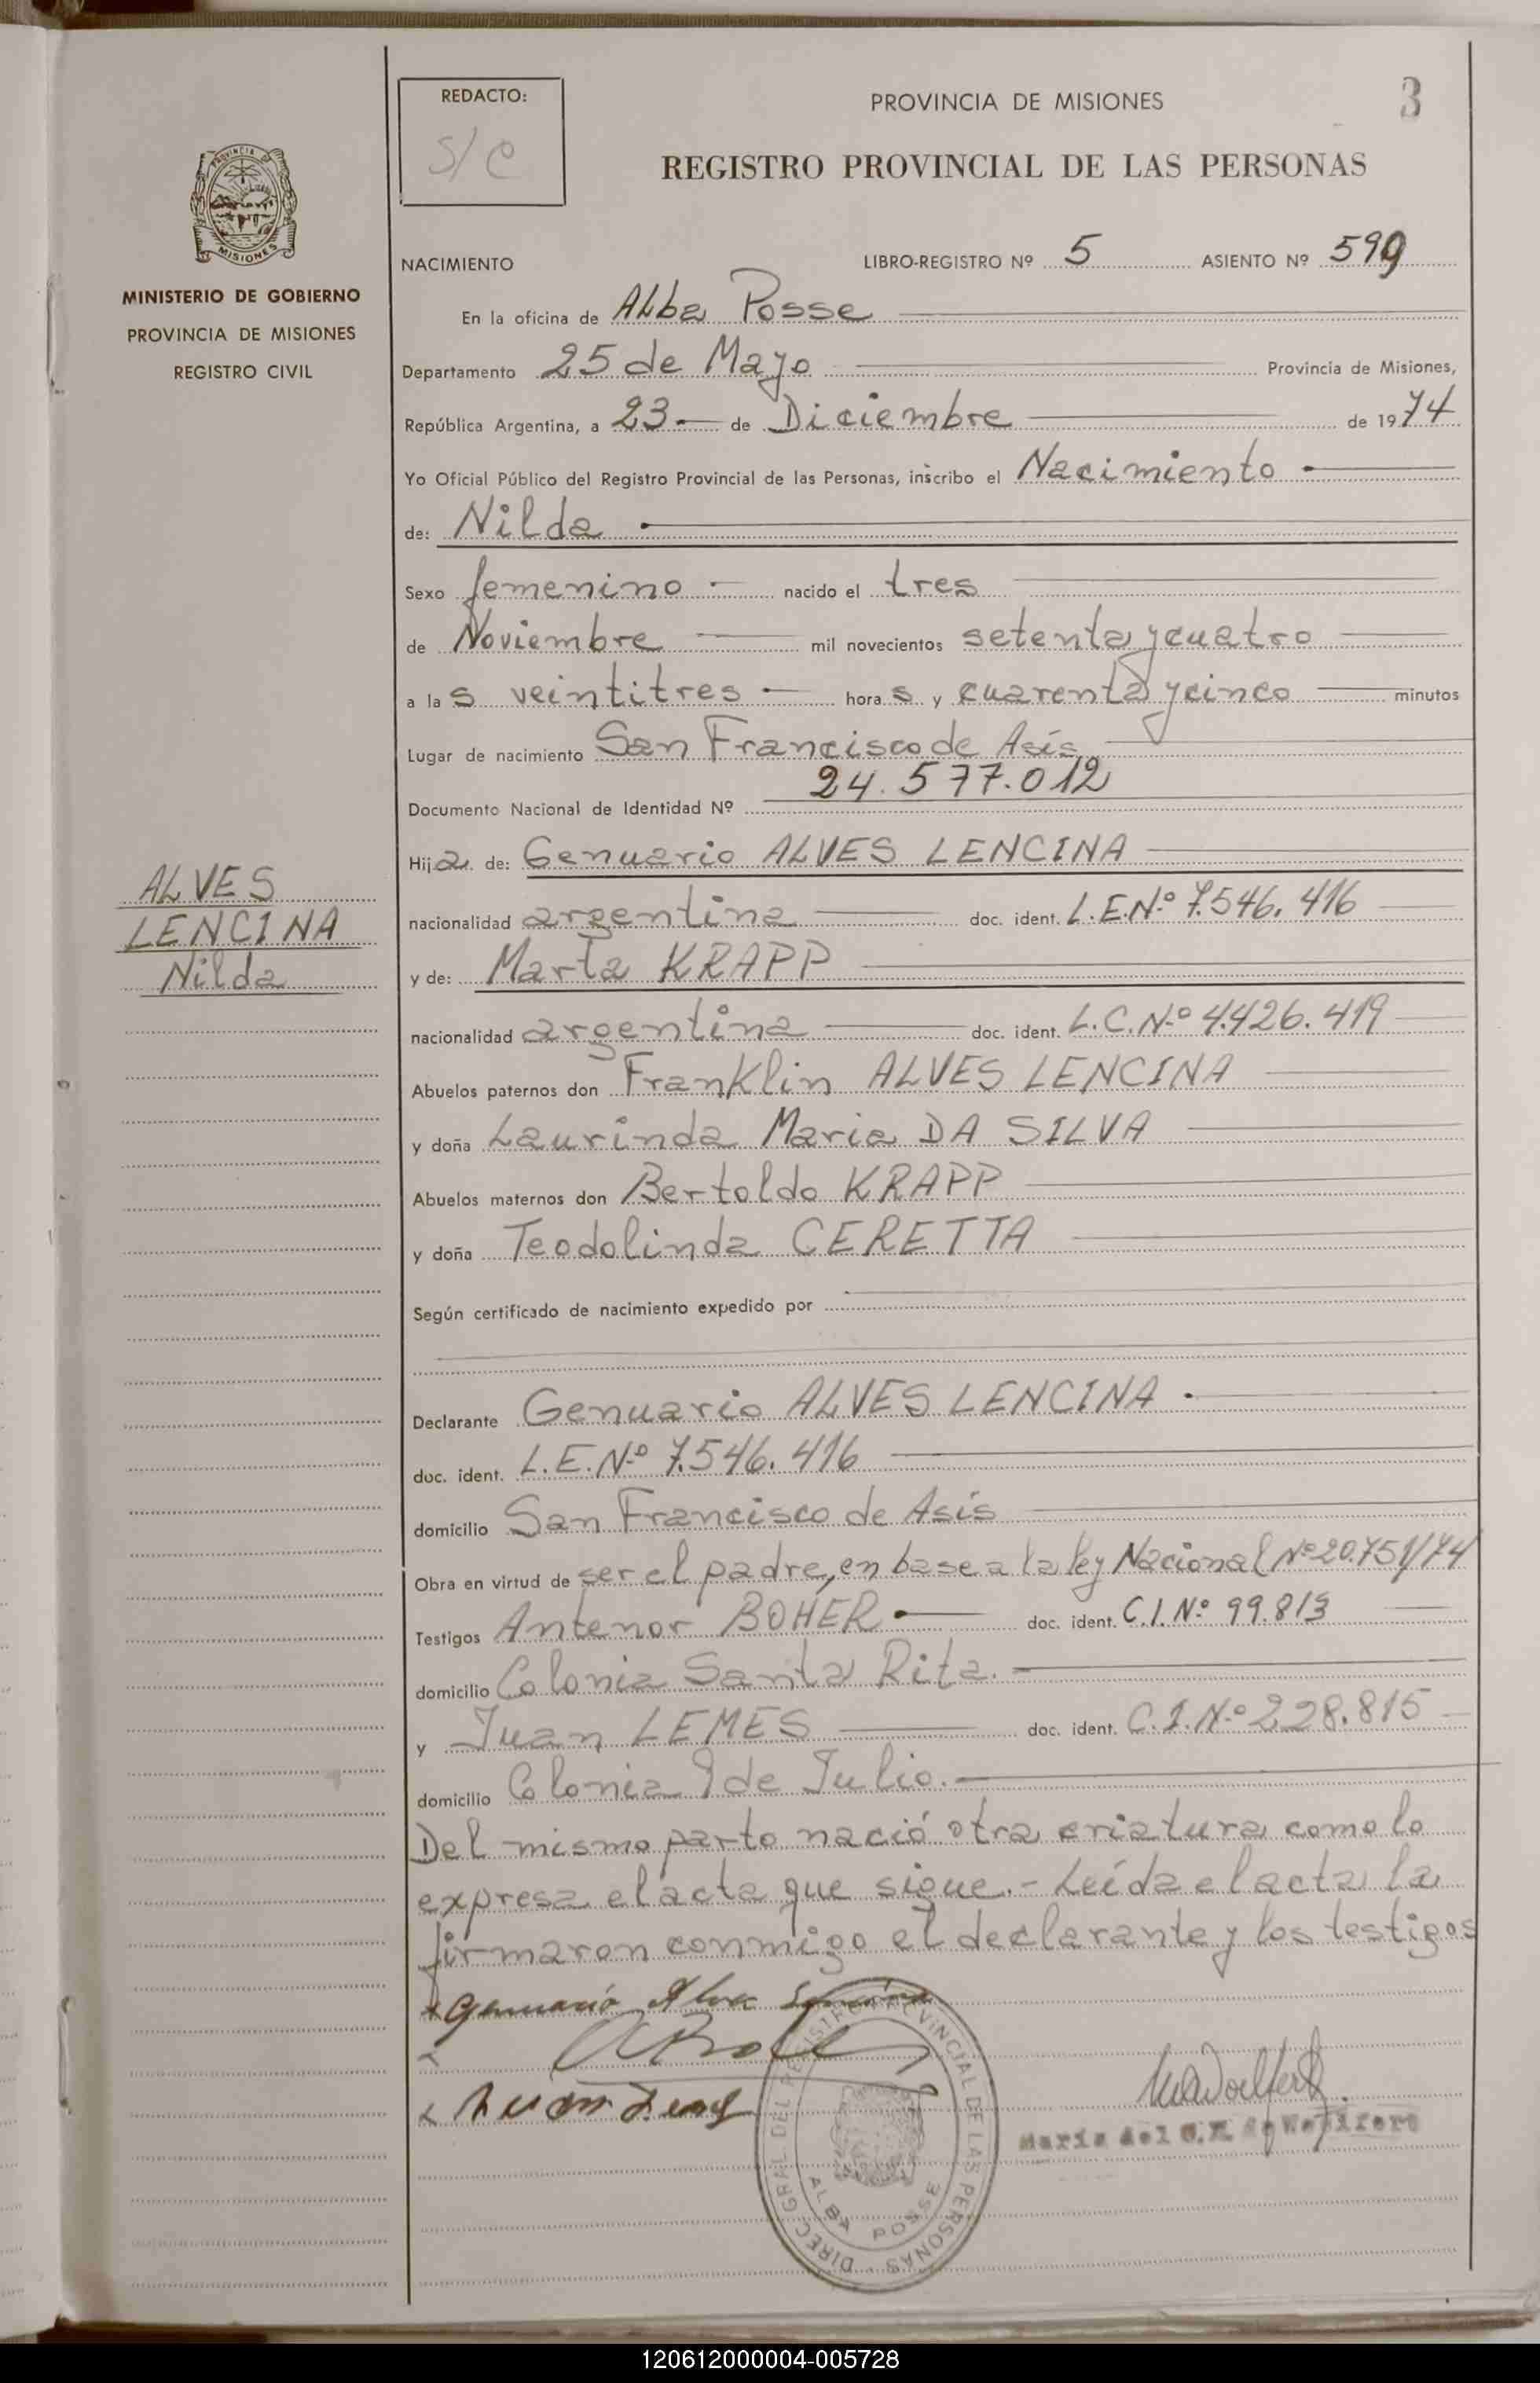 REDACTO:
S/C
PROVINCIA DE MISIONES
3
REGISTRO PROVINCIAL DE LAS PERSONAS
PROVINCIA DE
MISIONES
MINISTERIO DE GOBIERNO
PROVINCIA DE MISIONES
REGISTRO CIVIL
NACIMIENTO LIBRO-REGISTRO Nº 5 ASIENTO Nº 599
En la oficina de Alba Posse
Departamento 25 de Mayo Provincia de Misiones,
República Argentina, a 23 de Diciembre de 1974
Yo Oficial Público del Registro Provincial de las Personas, inscribo el Nacimiento
de: Nilda
Sexo femenino nacido el tres
de Noviembre mil novecientos setenta y cuatro
a las veintitres horas y cuarenta y cinco minutos
Lugar de nacimiento San Francisco de Asís
Documento Nacional de Identidad Nº 24.577.012
Hija de: Genuario ALVES LENCINA
ALVES
LENCINA
Nilda
nacionalidad argentina doc. ident. L.E.Nº 7.546.416
y de: Marta KRAPP
nacionalidad argentina doc. ident. L.C.Nº 4.426.419
Abuelos paternos don Franklin ALVES LENCINA
y doña Laurinda Maria DA SILVA
Abuelos maternos don Bertoldo KRAPP
y doña Teodolinda CERETTA
Según certificado de nacimiento expedido por
Declarante Genuario ALVES LENCINA
doc. ident. L.E.Nº 7.546.416
domicilio San Francisco de Asís
Obra en virtud de ser el padre, en base a la ley Nacional Nº 20.751/74
Testigos Antenor BOHER doc. ident. C.I.Nº 99.813
domicilio Colonia Santa Rita.
y Juan LEMES doc. ident. C.I.Nº 228.815
domicilio Colonia 9 de Julio.
Del mismo parto nació otra criatura como lo
expresa el acta que sigue.- Leída el acta la
firmaron conmigo el declarante y los testigos
x Genuario Alves Lencina
x
x Juan Lemes
DIREC. GRAL. DEL REGISTRO PROVINCIAL DE LAS PERSONAS
ALBA POSSE
María del
120612000004-005728